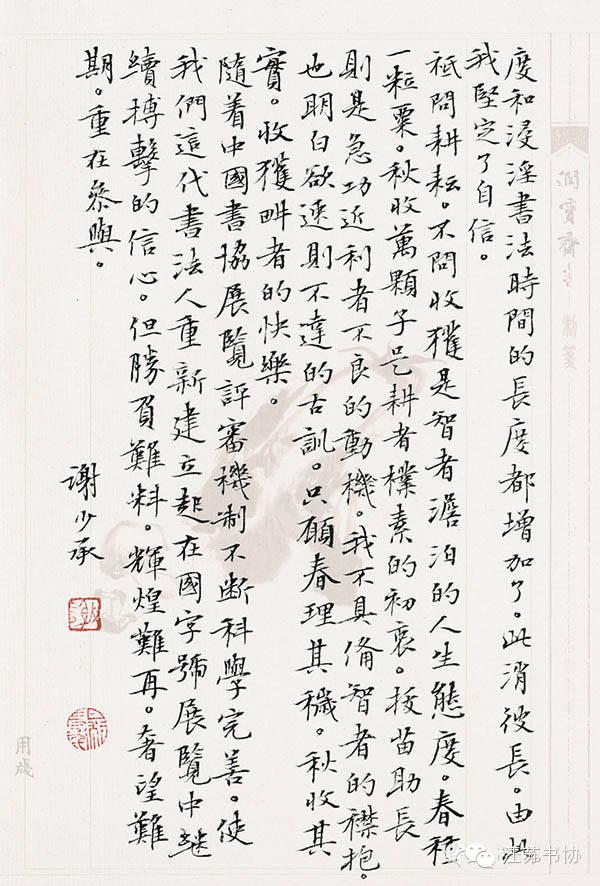 度和浸淫書法時間的長度都增加了。此消彼長。由此
我堅定了自信。
祇問耕耘。不問收獲是智者澹泊的人生態度。春種
一粒粟。秋收萬顆子是耕者樸素的初衷。拔苗助長
則是急功近利者不良的動機。我不具備智者的襟抱。
也明白欲速則不達的古訓。只願春理其穢。秋收其
實。收獲畊者的快樂。
隨着中國書協展覽評審機制不斷科學完善。使
我們這代書法人重新建立起在國字號展覽中継
續搏擊的信心。但勝負難料。輝煌難再。奢望難
期。重在參與。
謝少承
用牋
江苏书协